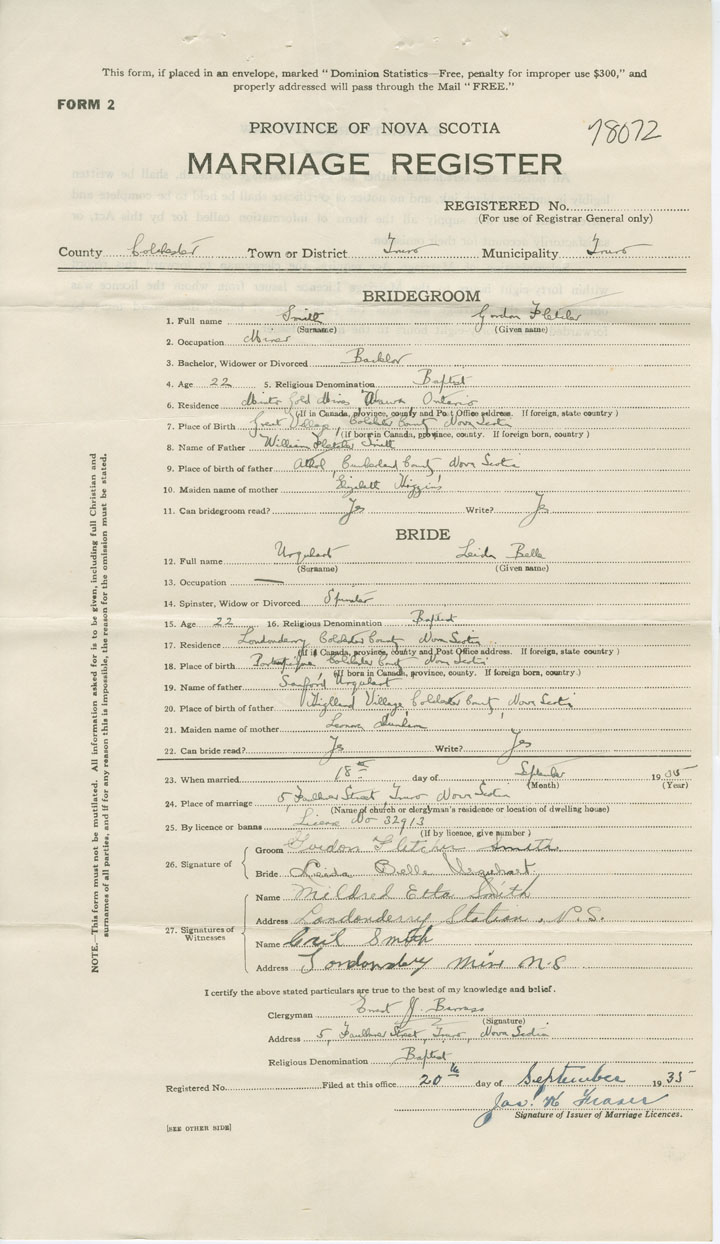 This form, if placed in an envelope, marked "Dominion Statistics—Free, penalty for improper use $300," and
properly addressed will pass through the Mail "FREE."
FORM 2
PROVINCE OF NOVA SCOTIA
78072
MARRIAGE REGISTER
REGISTERED No.
(For use of Registrar General only)
County Colchester Town or District Truro Municipality Truro
BRIDEGROOM
1. Full name Smith Gordon Fletcher
(Surname) (Given name)
2. Occupation Miner
3. Bachelor, Widower or Divorced Bachelor
4. Age 22 5. Religious Denomination Baptist
6. Residence Minto Gold Mines Ontario
(If in Canada, province, county and Post Office address. If foreign, state country)
7. Place of Birth Great Village, Colchester County Nova Scotia
(If born in Canada, province, county. If foreign born, country)
8. Name of Father William Fletcher Smith
9. Place of birth of father Athol, Cumberland County Nova Scotia
10. Maiden name of mother Elizabeth Higgins
11. Can bridegroom read? Yes Write? Yes
BRIDE
12. Full name Urquhart Leida Belle
(Surname) (Given name)
13. Occupation —
14. Spinster, Widow or Divorced Spinster
15. Age 22 16. Religious Denomination Baptist
17. Residence Londonderry Colchester County Nova Scotia
(If in Canada, province, county and Post Office address. If foreign, state country)
18. Place of birth Portapique Colchester County Nova Scotia
(If born in Canada, province, county. If foreign born, country.)
19. Name of father Sanford Urquhart
20. Place of birth of father Highland Village Colchester County, Nova Scotia
21. Maiden name of mother
22. Can bride read? Yes Write? Yes
23. When married 18th day of September 1935
(Month) (Year)
24. Place of marriage 5 Faulkner Street Truro Nova Scotia
(Name of church or clergyman's residence or location of dwelling house)
25. By licence or banns License No 32913
(If by licence, give number)
26. Signature of
Groom Gordon Fletcher Smith
Bride Leida Belle Urquhart
27. Signatures of Witnesses
Name Mildred Etta Smith
Address Londonderry Station, N.S.
Name Cecil Smith
Address Londonderry Mine N-S
I certify the above stated particulars are true to the best of my knowledge and belief.
Clergyman Ernest J. Barrass
(Signature)
Address 5, Faulkner Street, Truro, Nova Scotia
Religious Denomination Baptist
Registered No. Filed at this office 20th day of September 1935
Jas. K Fraser
Signature of Issuer of Marriage Licences.
[SEE OTHER SIDE]
NOTE.—This form must not be mutilated. All information asked for is to be given, including full Christian and
surnames of all parties, and if for any reason this is impossible, the reason for the omission must be stated.